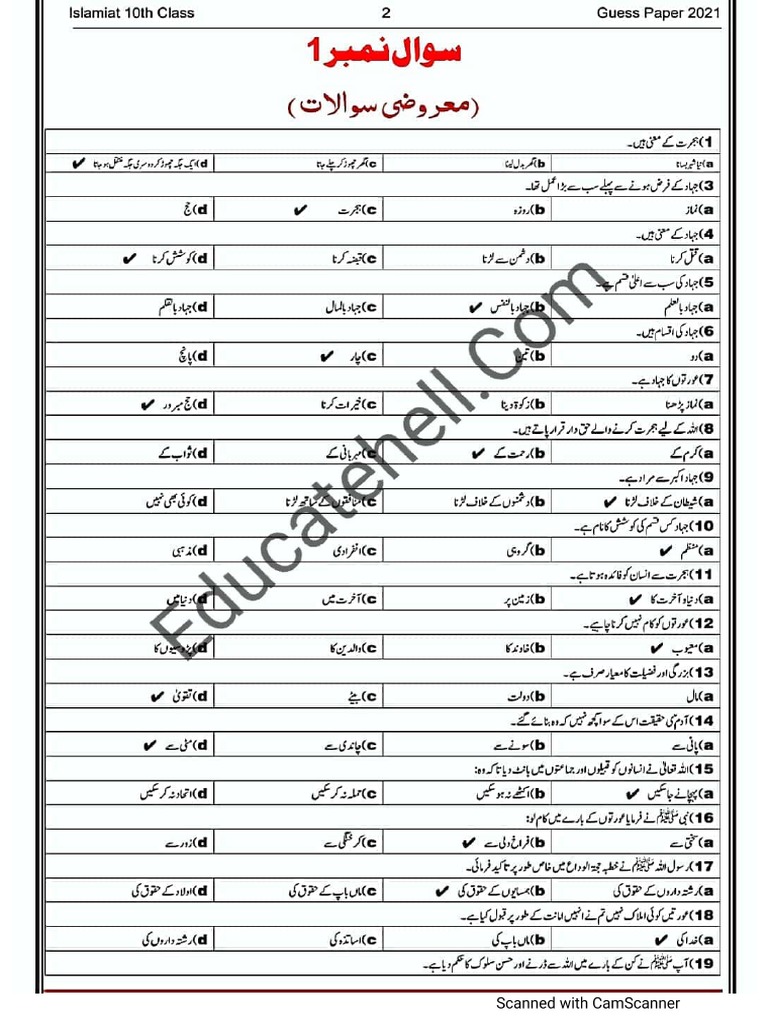 Islamiat 10th Class 2 Guess Paper 2021
سوال نمبر 1
(معروضی سوالات)
1) ہجرت کے معنی ہیں۔
a) نیا شہر بسانا b) گھر بدل لینا c) گھر چھوڑ کر چلے جانا d) ایک جگہ چھوڑ کر دوسری جگہ منتقل ہو جانا ✔
3) جہاد کے فرض ہونے سے پہلے سب سے بڑا عمل تھا۔
a) نماز b) روزہ c) ہجرت ✔ d) حج
4) جہاد کے معنی ہیں۔
a) قتل کرنا b) دشمن سے لڑنا c) قبضہ کرنا d) کوشش کرنا ✔
5) جہاد کی سب سے اعلیٰ قسم ہے۔
a) جہاد بالعلم b) جہاد بالنفس ✔ c) جہاد بالمال d) جہاد بالقلم
6) جہاد کی اقسام ہیں۔
a) دو b) تین c) چار ✔ d) پانچ
7) عورتوں کا جہاد ہے۔
a) نماز پڑھنا b) زکوۃ دینا c) خیرات کرنا d) حج مبرور ✔
8) اللہ کے لیے ہجرت کرنے والے حق دار قرار پاتے ہیں۔
a) کرم کے b) رحمت کے ✔ c) مہربانی کے d) ثواب کے
9) جہاد اکبر سے مراد ہے۔
a) شیطان کے خلاف لڑنا ✔ b) دشمنوں کے خلاف لڑنا c) منافقوں کے ساتھ لڑنا d) کوئی بھی نہیں
10) جہاد کس قسم کی کوشش کا نام ہے۔
a) منظم ✔ b) گروہی c) انفرادی d) مذہبی
11) ہجرت سے انسان کو فائدہ ہوتا ہے۔
a) دنیا و آخرت کا ✔ b) زمین پر c) آخرت میں d) دنیا میں
12) عورتوں کو کام نہیں کرنا چاہیے۔
a) معیوب ✔ b) خاوند کا c) والدین کا d) پڑوسیوں کا
13) بزرگی اور فضیلت کا معیار صرف ہے۔
a) مال b) دولت c) بیٹے d) تقویٰ ✔
14) آدم کی حقیقت اس کے سوا کچھ نہیں کہ وہ بنائے گئے۔
a) پانی سے b) سونے سے c) چاندی سے d) مٹی سے ✔
15) اللہ تعالیٰ نے انسانوں کو قبیلوں اور جماعتوں میں بانٹ دیا تاکہ وہ:
a) پہچانے جا سکیں ✔ b) اکٹھے نہ ہو سکیں c) حملہ نہ کر سکیں d) اتحاد نہ کر سکیں
16) نبی ﷺ نے فرمایا عورتوں کے بارے میں کام لو:
a) سختی سے b) فراخ دلی سے ✔ c) کرختگی سے d) زور سے
17) رسول اللہ ﷺ نے خطبہ حجۃ الوداع میں خاص طور پر تاکید فرمائی۔
a) رشتہ داروں کے حقوق کی b) ہمسایوں کے حقوق کی ✔ c) ماں باپ کے حقوق کی d) اولاد کے حقوق کی
18) عورتیں کوئی املاک نہیں تم نے انہیں امانت کے طور پر قبول کیا ہے۔
a) خدا کی ✔ b) ماں باپ کی c) اساتذہ کی d) رشتہ داروں کی
19) آپ ﷺ نے کن کے بارے میں اللہ سے ڈرنے اور حسن سلوک کا حکم دیا ہے۔
Educatehell.Com
Scanned with CamScanner